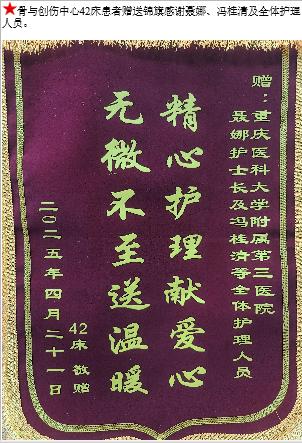 ★骨与创伤中心42床患者赠送锦旗感谢聂娜、冯桂清及全体护理
人员。
赠：重庆医科大学附属第三医院
聂娜护士长及冯桂清等全体护理人员
精心护理献爱心
无微不至送温暖
42床 敬赠
二〇二五年四月二十一日